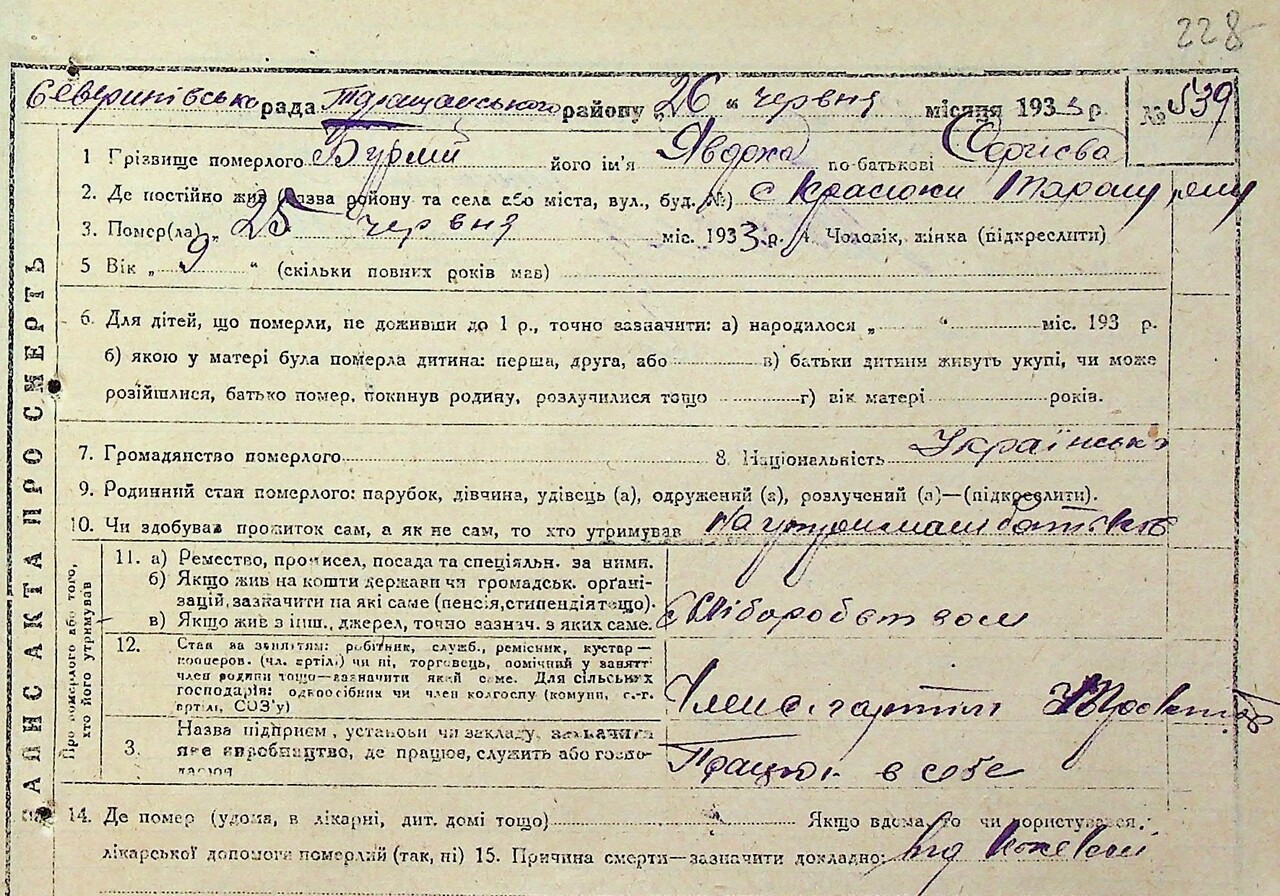 228
Северинівсько рада Таращанського району „26“ червня місяця 1933 р. № 539
1 Грізвище померлого Бурмій його ім'я Явдоха по-батькові Сергієва
2. Де постійно жив (назва району та села або міста, вул., буд. №) с Красюки Таращ
3. Помер(ла) „25 червня міс. 1933 р. 4. Чоловік, жінка (підкреслити)
5 Вік „9“ (скільки повних років мав)
6. Для дітей, що померли, не доживши до 1 р., точно зазначити: а) народилося „ “ міс. 193 р.
б) якою у матері була померла дитина: перша, друга, або в) батьки дитини живуть укупі, чи може
розійшлися, батько помер, покинув родину, розлучилися тощо г) вік матері років.
7. Громадянство померлого 8. Національність Українська
9. Родинний стан померлого: парубок, дівчина, удівець (а), одружений (а), розлучений (а)—(підкреслити).
10. Чи здобував прожиток сам, а як не сам, то хто утримував На утриманні батьків
ЗАПИС АКТА ПРО СМЕРТЬ
Про померлого або того,
хто його утримував
11. а) Ремество, промисел, посада та спеціяльн. за ними.
б) Якщо жив на кошти держави чи громадськ. орґані-
зацій, зазначити на які саме (пенсія, стипендія тощо).
в) Якщо жив з інш., джерел, точно зазнач. з яких саме.
Хліборобством
12. Стан за заняттям: робітник, служб., ремісник, кустар—
кооперов. (чл. артілі) чи ні, торговець, помічний у занятті
член родини тощо—зазначити який саме. Для сільських
господарів: одноосібник чи член колгоспу (комуни, с.-г.
артілі, СОЗ'у)
Член с.г артіли
3. Назва підприєм., установи чи закладу, зазначити
яке виробництво, де працює, служить або госпо-
дарює
Працює в себе
14. Де помер (удома, в лікарні, дит. домі тощо) Якщо вдома, то чи користувався
лікарської допомоги померлий (так, ні) 15. Причина смерти—зазначити докладно: від